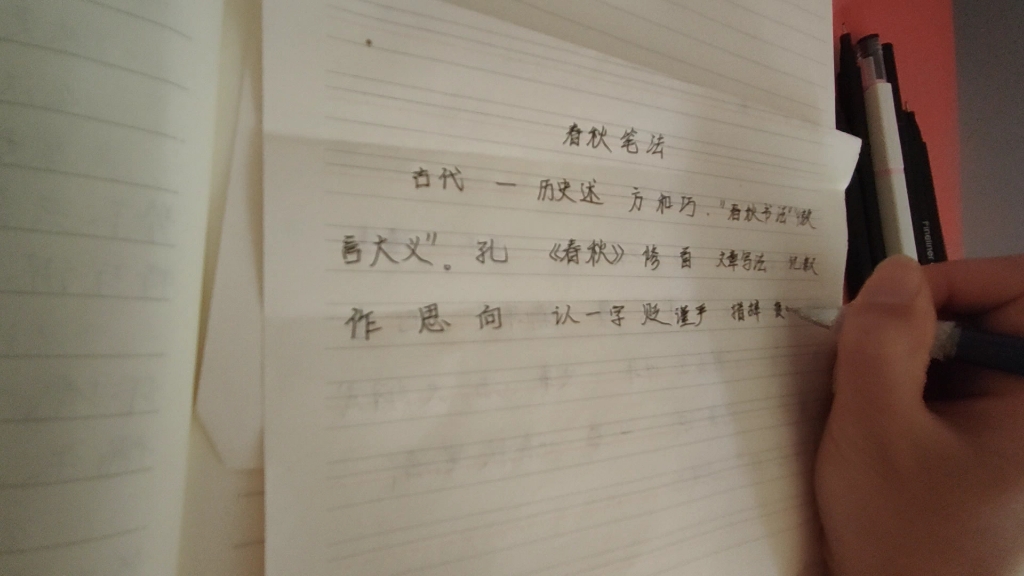 春秋笔法
古代 一 历史述 方和巧.“春秋书法”“微
言大义”。 孔 《春秋》 修 首 文章写法 儿默
作 思 向 认一字 贬 谨严 措辞